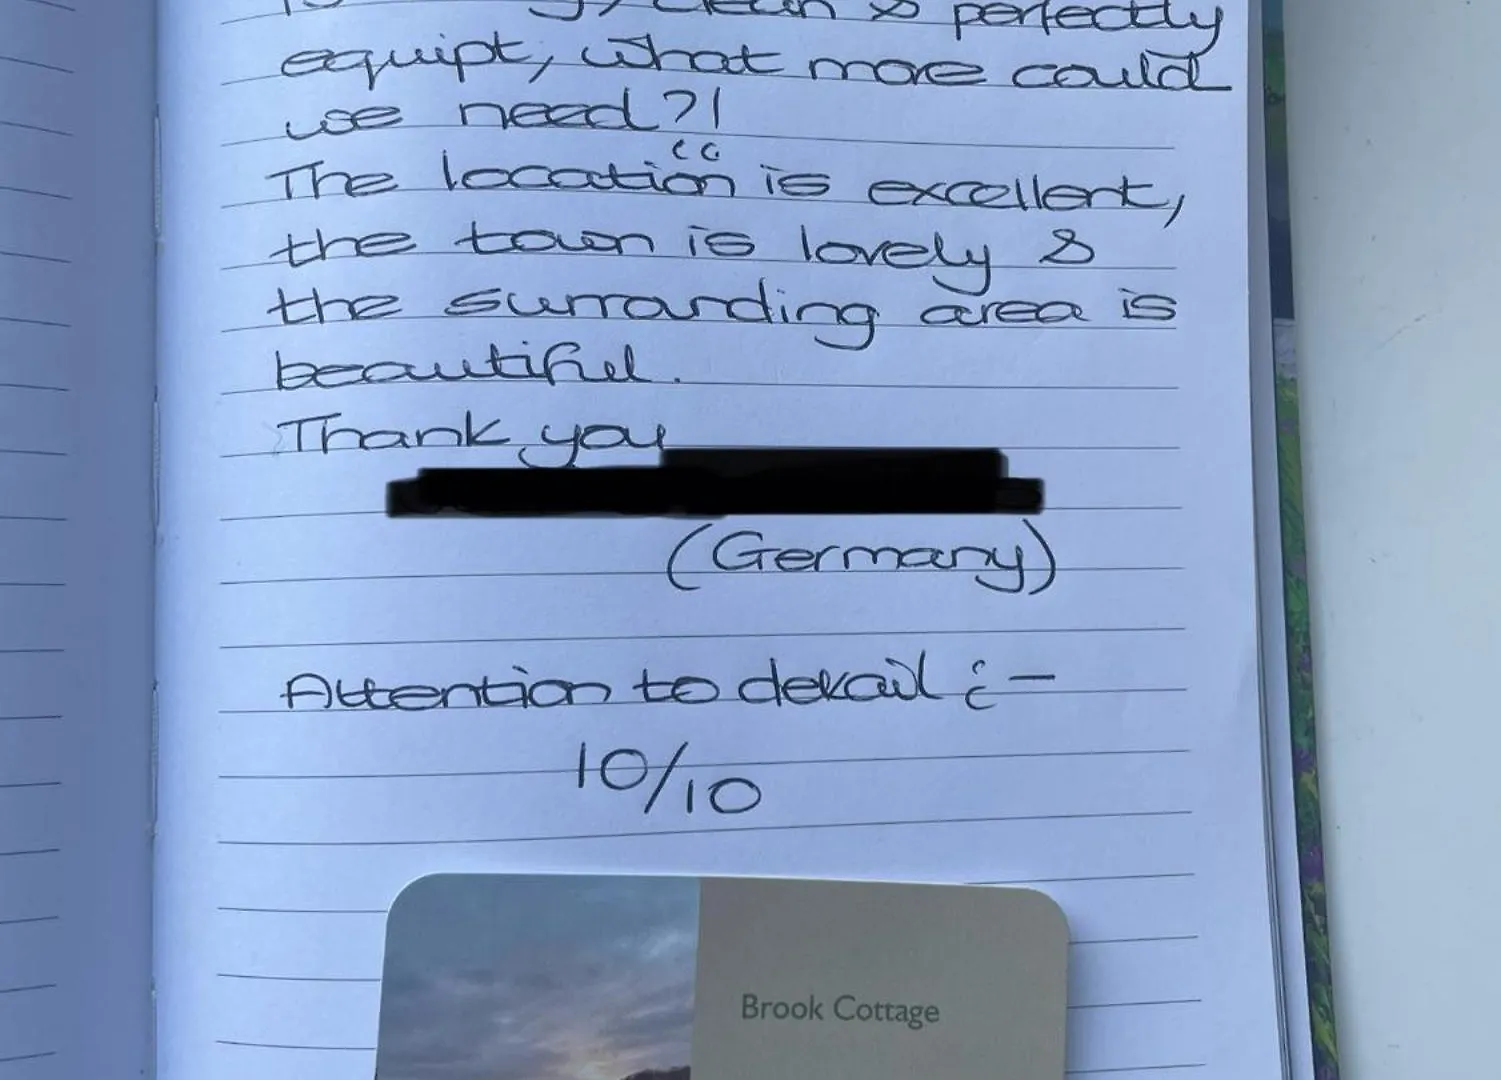 clean & perfectly
equipt, what more could
we need?!
The location is excellent,
the town is lovely &
the surrounding area is
beautiful.
Thank you
(Germany)
Attention to detail :-
10/10
Brook Cottage